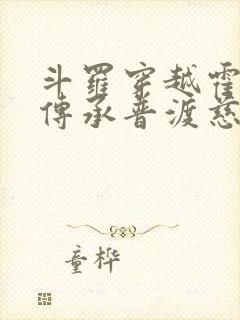 斗羅穿越霍
傳承普渡慈
童樺